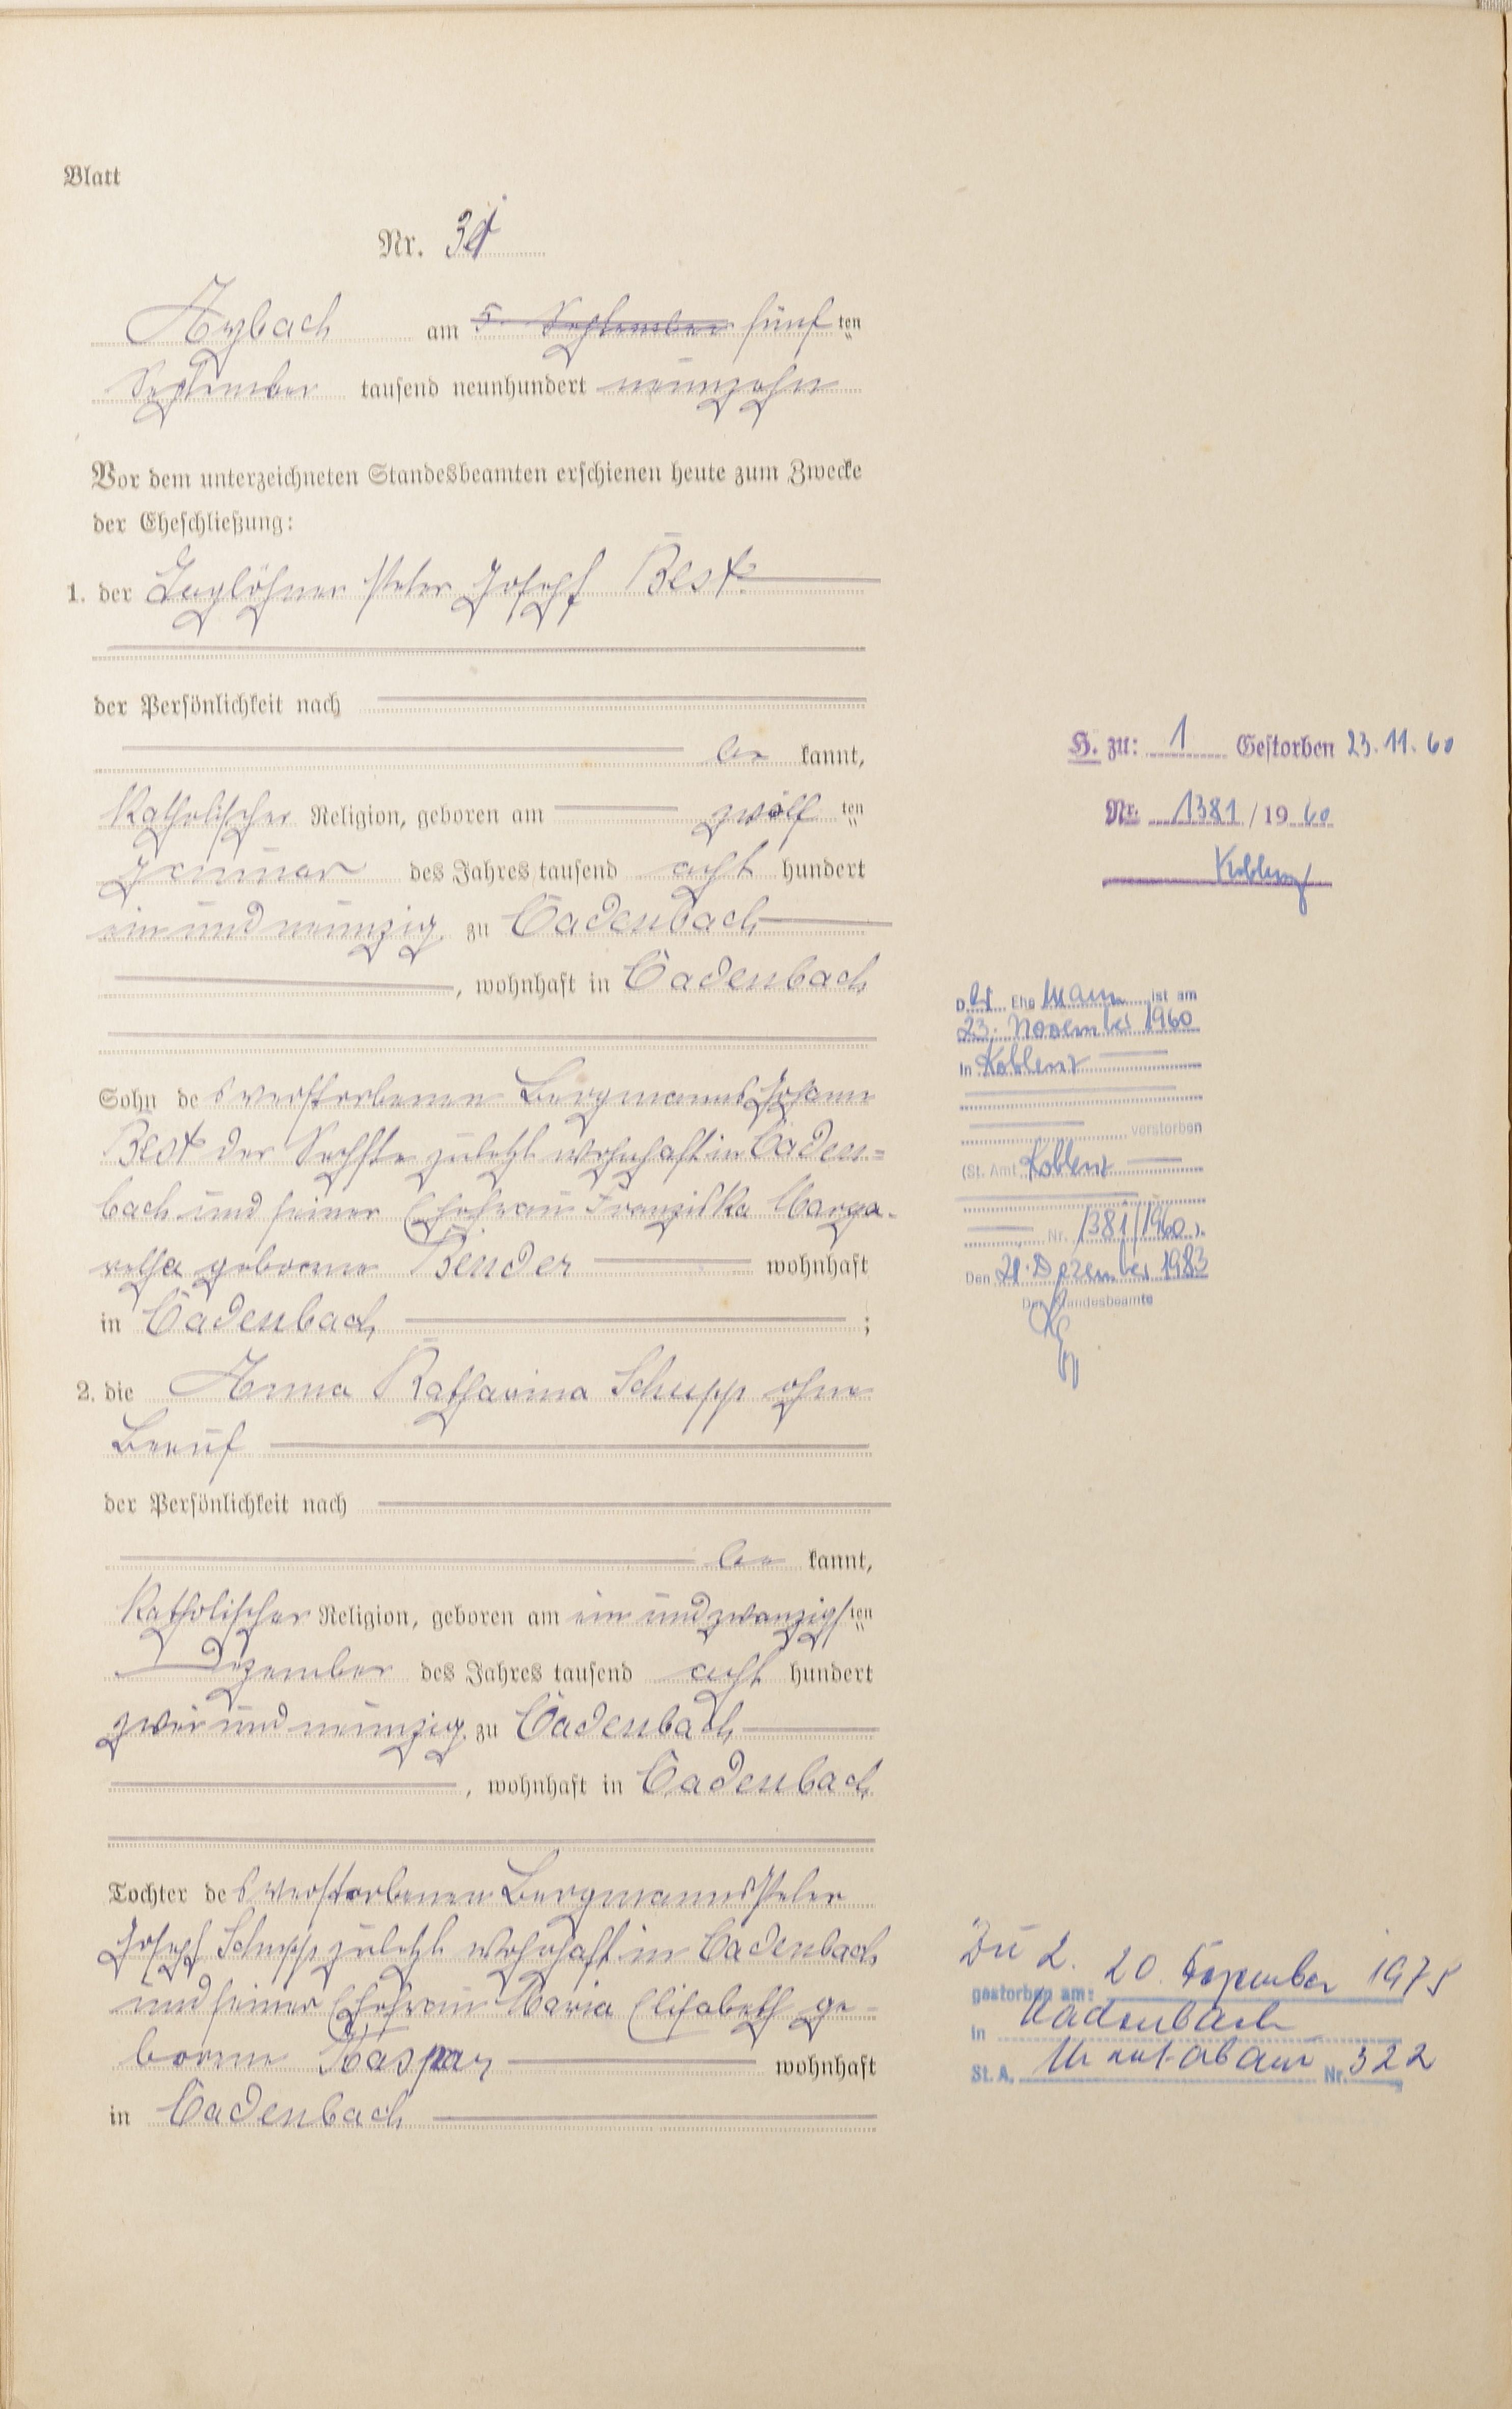 Blatt
Nr. 31
Arzbach am 5. September fünf ten
September tausend neunhundert neunzehn
Vor dem unterzeichneten Standesbeamten erschienen heute zum Zwecke
der Eheschließung:
1. der Taglöhner Peter Josef Best
der Persönlichkeit nach
be kannt,
Katholischer Religion, geboren am zwölf ten
Januar des Jahres tausend acht hundert
ein und neunzig zu Cadenbach
, wohnhaft in Cadenbach
Sohn des verstorbenen Bergmanns Johann
Best der Sechste zuletzt wohnhaft in Caden=
bach und seiner Ehefrau Franziska Marga-
retha geborene Bender wohnhaft
in Cadenbach ;
2. die Anna Katharina Schupp ohne
Beruf
der Persönlichkeit nach
be kannt,
Katholischer Religion, geboren am ein und zwanzigsten
Dezember des Jahres tausend acht hundert
zwei und neunzig zu Cadenbach
, wohnhaft in Cadenbach
Tochter des verstorbenen Bergmanns Peter
Josef Schupp zuletzt wohnhaft in Cadenbach
und seiner Ehefrau Maria Elisabeth ge=
borene Kaspar wohnhaft
in Cadenbach
H. zu: 1 Gestorben 23.11.60
Nr. 1381/1960
Koblenz
Der Ehe Mann ist am
23. November 1960
in Koblenz
verstorben
(St. Amt Koblenz
Nr. 1381/1960).
Den 21. Dezember 1983
Der Standesbeamte
Zu 2.
gestorben am: 20. Dezember 1975
in Kadenbach
St. A. Montabaur Nr. 322